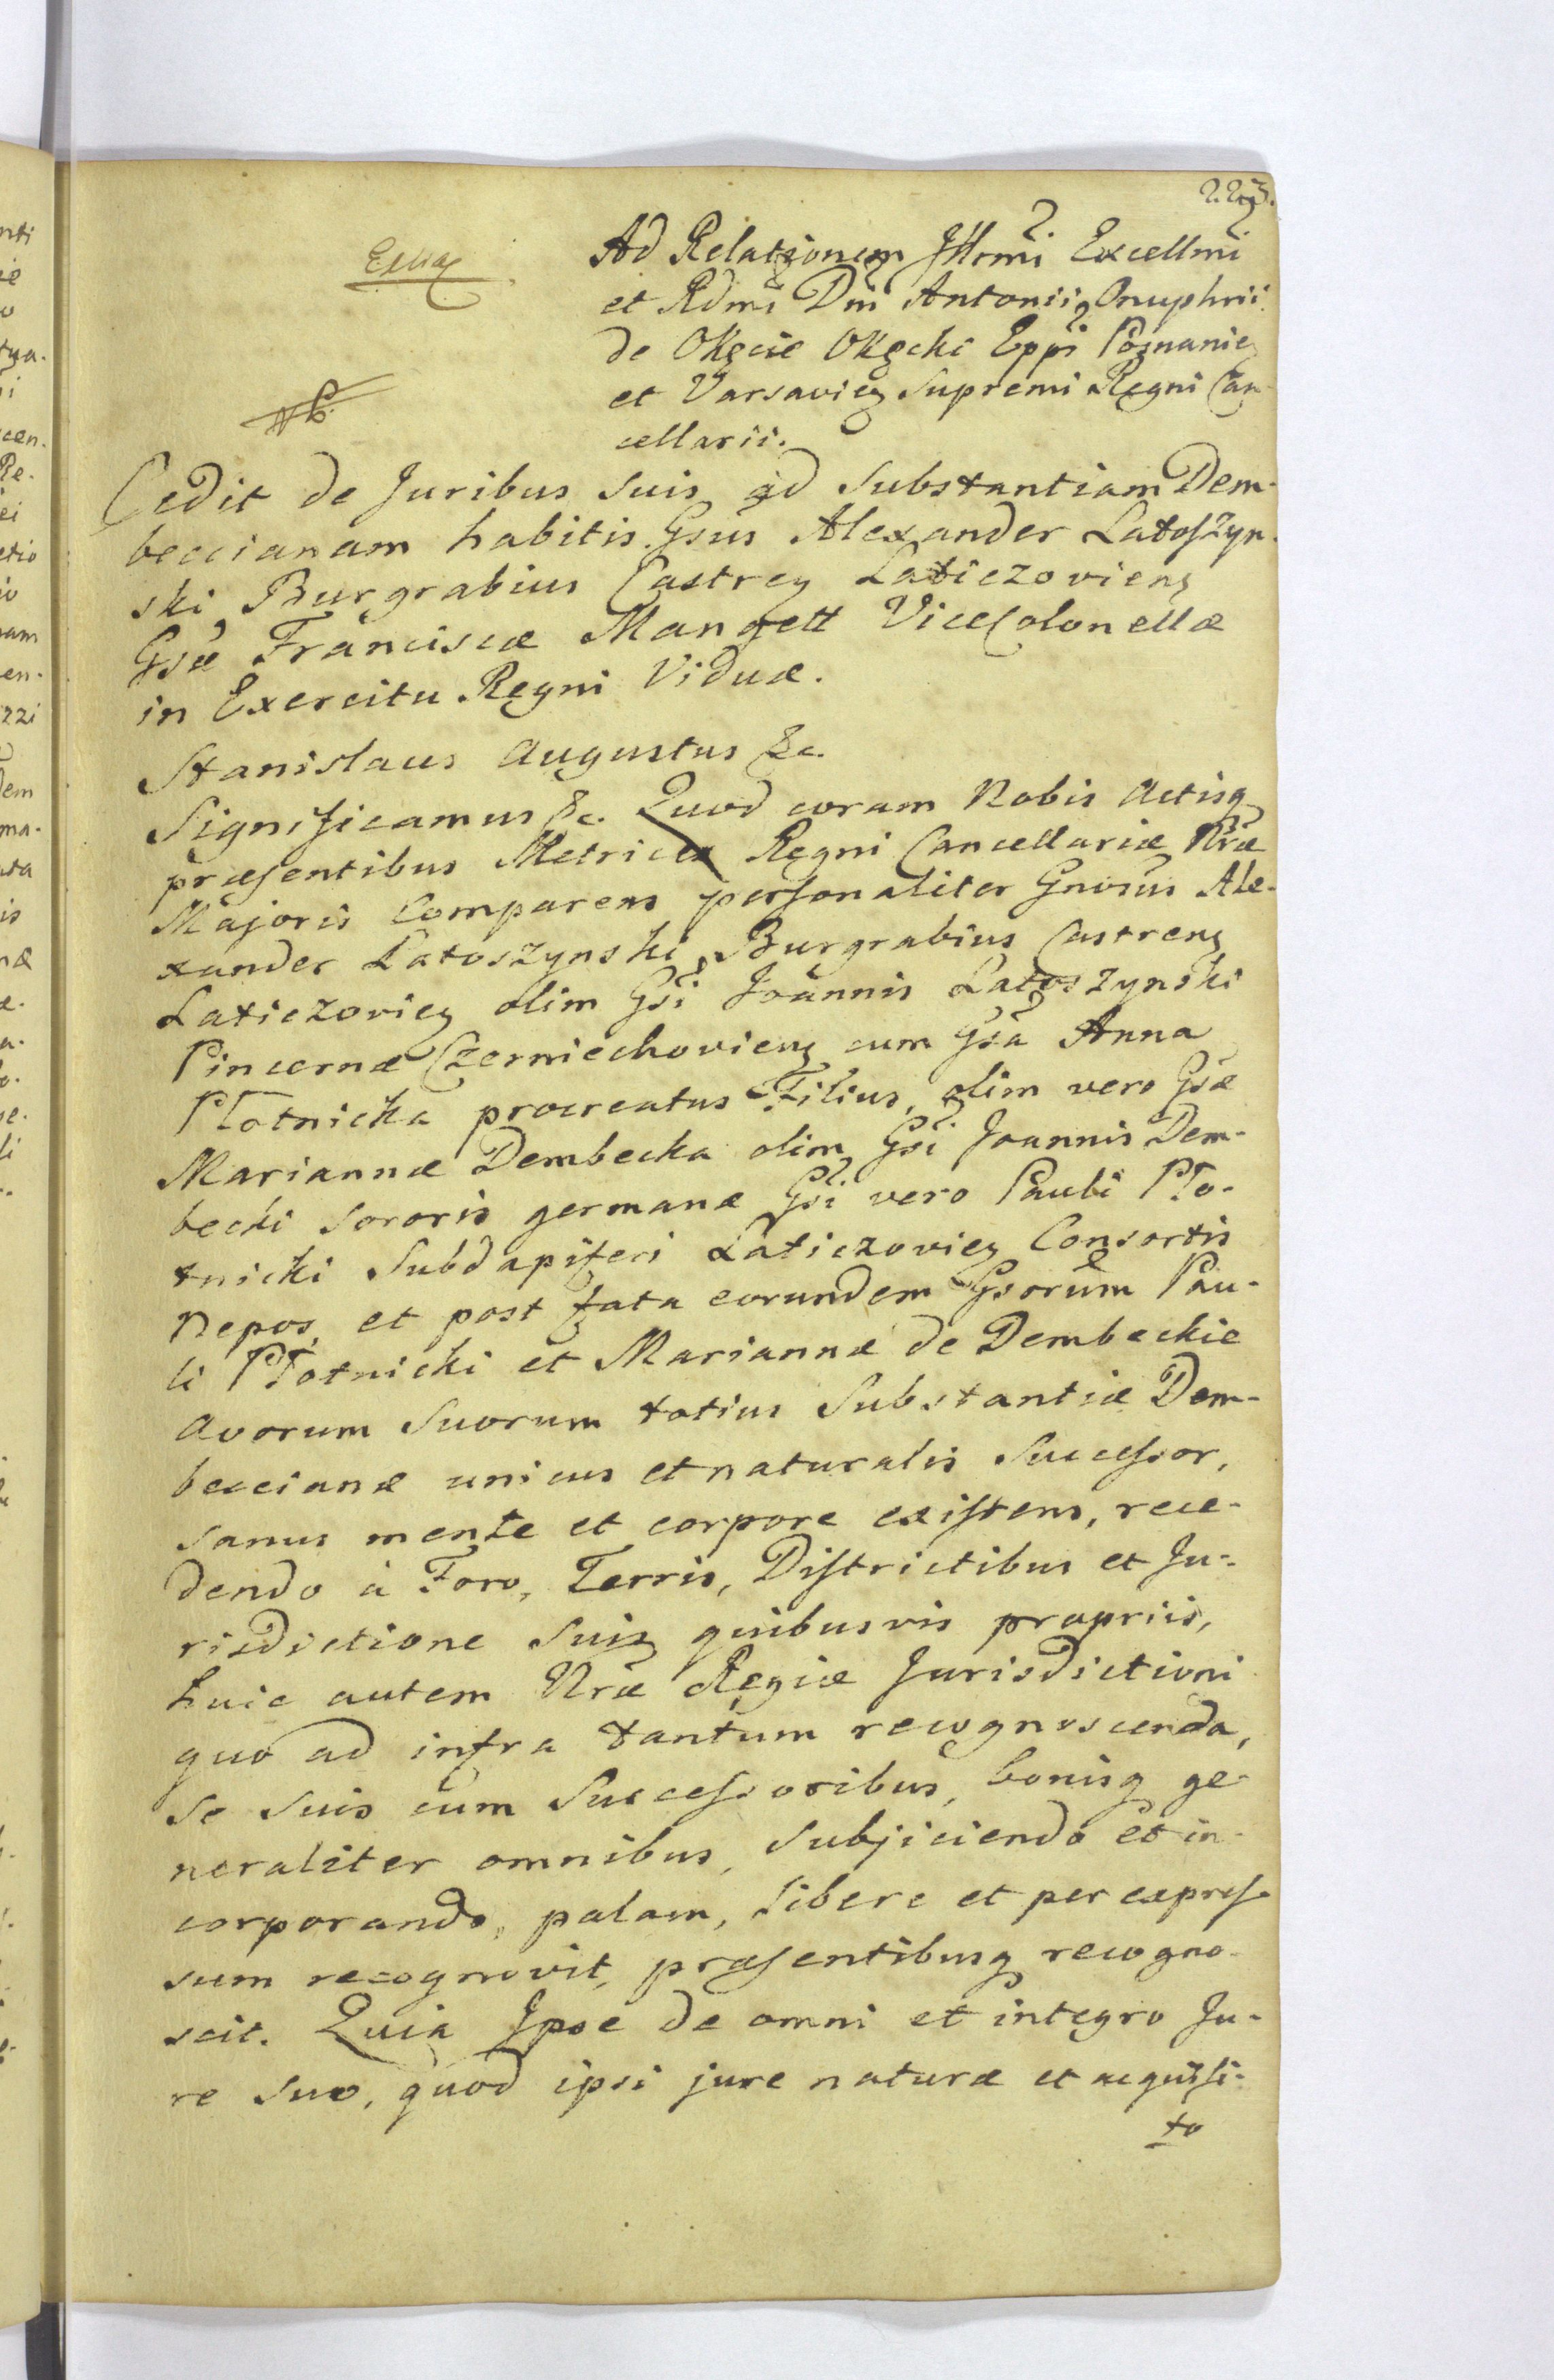 223.
Ad Relationem Jllrmi Excellmi
et Rdmi Dni Antonii Onuphrii
de Okęcie Okęcki Eppi Posnanien
et Varsavien Supremi Regni Can-
cellarii.
Cedit de Juribus suis ad Substantiam Dem-
beccianam habitis Gsus Alexander Latoszyn-
ski Burgrabius Castren Laticzoviens
Gsæ Franciscæ Mangett ViceColonellæ
in Exercitu Regni Viduæ.
Stanislaus Augustus &c.
Significamus &c. Quod coram Nobis Actisq
præsentibus Metrices Regni Cancellariæ Nræ
Majoris Comparens personaliter Gnosus Ale-
xander Latoszynski Burgrabius Castrens
Laticzovien olim Gsi Joannis Latoszynski
Pincernæ Czerniechoviens cum Gsa Anna
Płotnicka procreatus Filius, olim vero Gsæ
Mariannæ Dembecka olim Gsi Joannis Dem-
becki Sororis germanæ Gsi vero Pauli Pło-
tnicki Subdapiferi Laticzovien Consortis
Nepos, et post fata eorundem Gsorum Pau-
li Płotnicki et Mariannæ de Dembeckie
Avorum Suorum totius Substantiæ Dem-
beccianæ unicus et naturalis Successor,
sanus mente et corpore existens, rece-
dendo à Foro, Terris, Districtibus et Ju-
risdictione Suis quibusvis propriis,
huic autem Nræ Regiæ Jurisdictioni
quo ad infra tantum recognoscenda,
se suis cum Successoribus, bonisq ge-
neraliter omnibus, Subjiciendo et in-
corporando, palam, libere et per expres-
sum recognovit, præsentibusq recogno-
scit. Quia Ipse de omni et integro Ju-
re suo, quod ipsi jure naturæ et acquisi-
to